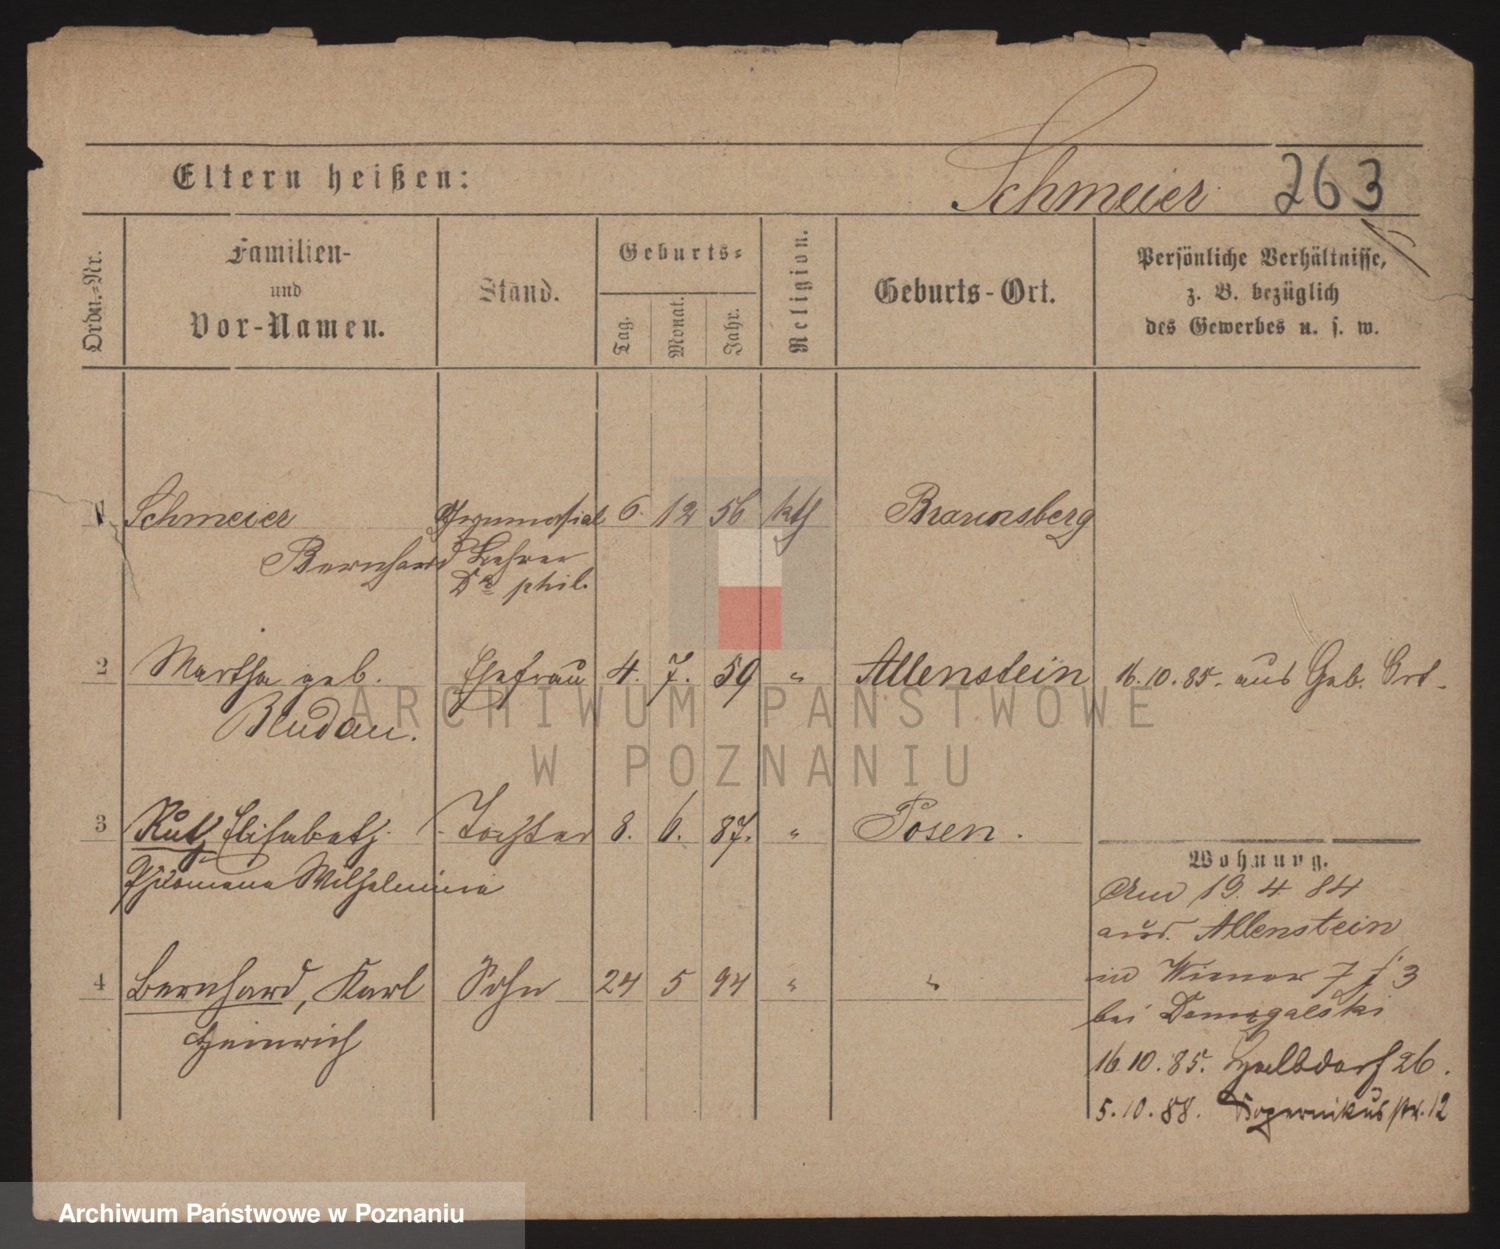 Eltern heißen: Schmeier 263
Ordn.-Nr. Familien- und Vor-Namen. Stand. Geburts- Tag. Monat. Jahr. Religion. Geburts-Ort. Persönliche Verhältnisse, z. B. bezüglich des Gewerbes u. s. w.
1 Schmeier Gymnasial 6. 12 56 kth Braunsberg
Bernhard Lehrer
Dr phil.
2 Martha geb. Ehefrau 4. 7. 59 " Allenstein 16.10.85. aus Geb. Ort.
Bludau.
3 Ruth Elisabeth Tochter 8. 6. 87. " Posen.
Philomena Wilhelmina
Wohnung.
Am 19. 4 84
aus Allenstein
4 Bernhard, Karl Sohn 24 5 94 " "
Heinrich
in Wiener 7 f 3
bei Domagalski
16.10.85. Halbdorf 26.
5.10.88. Kopernikus str. 12
ARCHIWUM PAŃSTWOWE
W POZNANIU
Archiwum Państwowe w Poznaniu